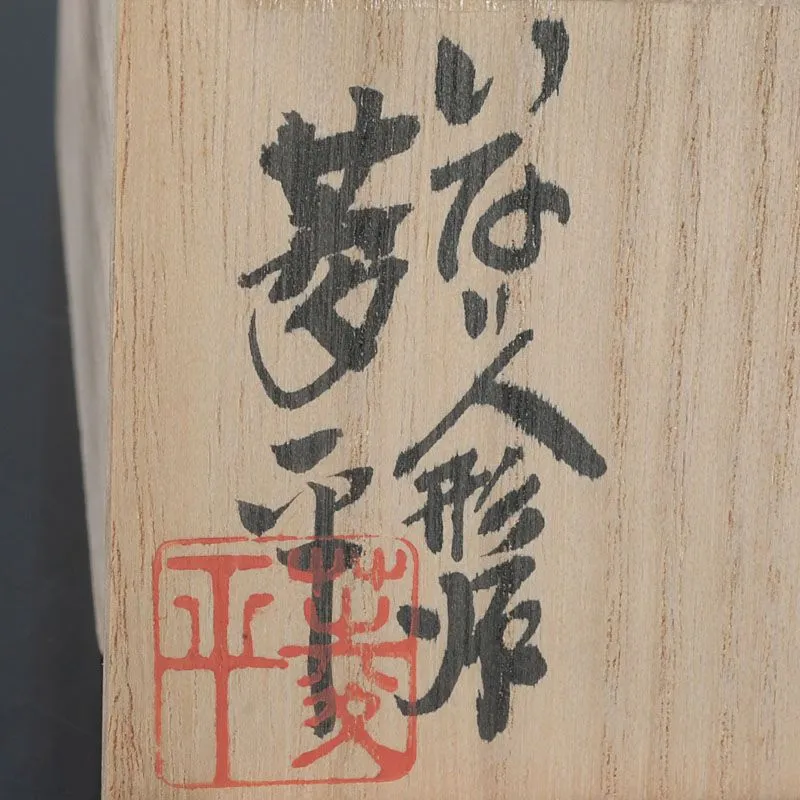 いなり人形師
菱平
菱平